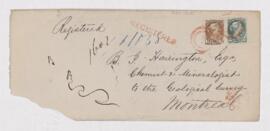 Registered
REGISTERED
B. J. Harrington, Esq.
Chemist & Mineralogist
to the Geological Survey
Montreal